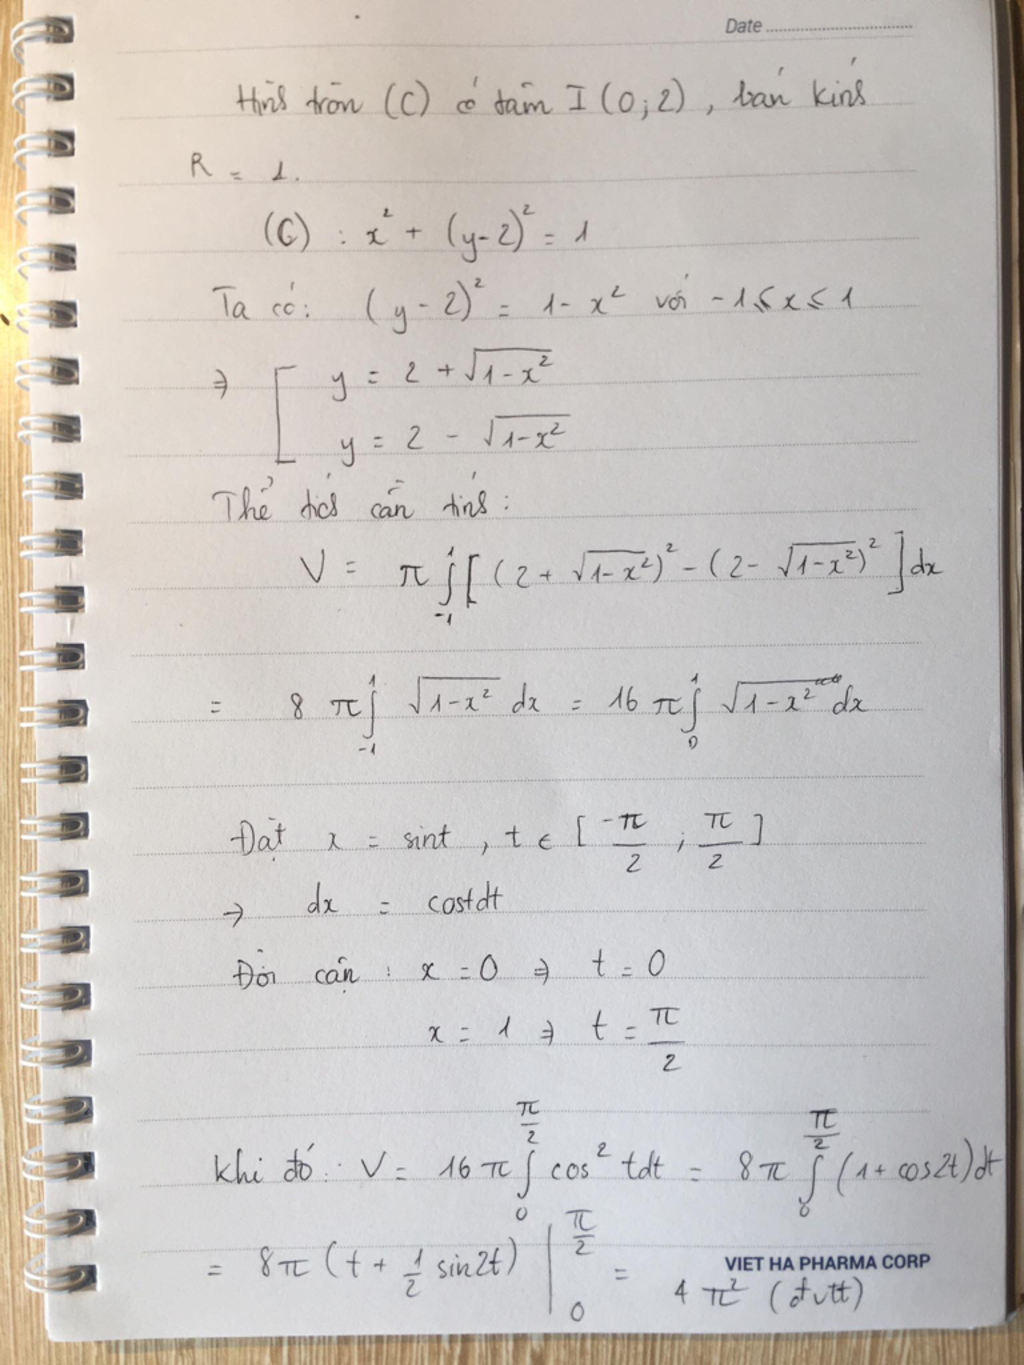 Date
Hình tròn (C) có tâm I (0; 2), bán kính
R = 1.
(C) : x² + (y-2)² = 1
Ta có: (y - 2)² = 1 - x² với -1 ≤ x ≤ 1
⇒ [ y = 2 + √(1-x²)
y = 2 - √(1-x²)
Thể tích cần tính:
V = π ∫₋₁¹ [(2 + √(1-x²))² - (2 - √(1-x²))²] dx
= 8 π ∫₋₁¹ √(1-x²) dx = 16 π ∫₀¹ √(1-x²) dx
Đặt x = sint, t ∈ [-π/2 ; π/2]
→ dx = costdt
Đổi cận : x = 0 ⇒ t = 0
x = 1 ⇒ t = π/2
Khi đó: V = 16 π ∫₀^(π/2) cos² tdt = 8 π ∫₀^(π/2) (1 + cos2t)dt
= 8π (t + 1/2 sin2t) |₀^(π/2) = 4 π² (đvtt)
VIET HA PHARMA CORP